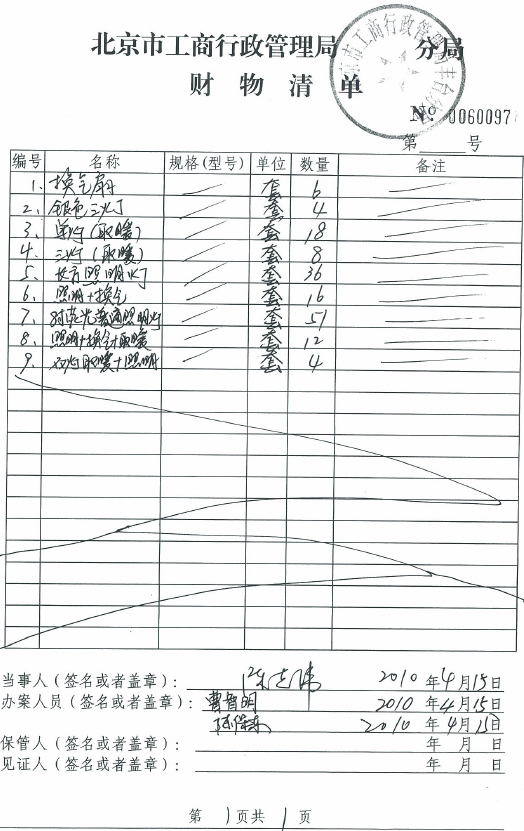 北京市工商行政管理局 分局
财物清单
№ 0060097
第 号
编号 名称 规格(型号) 单位 数量 备注
1、换气扇 套 6
2、银色三灯 套 4
3、单灯(取暖) 套 18
4、三灯(取暖) 套 8
5、长方照明灯 套 36
6、照明+换气 套 16
7、普通照明灯 套 51
8、照明+换气+取暖 套 12
9、双灯取暖+照明 套 4
当事人(签名或者盖章): 2010年4月15日
办案人员(签名或者盖章): 曹智明 2010年4月15日
2010年4月15日
保管人(签名或者盖章): 年 月 日
见证人(签名或者盖章): 年 月 日
第 1 页共 1 页